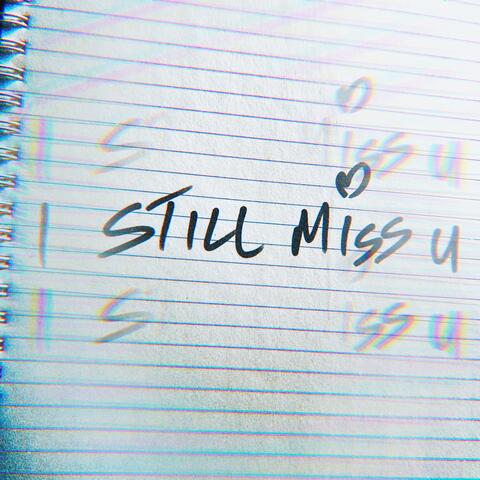 I STILL MISS U